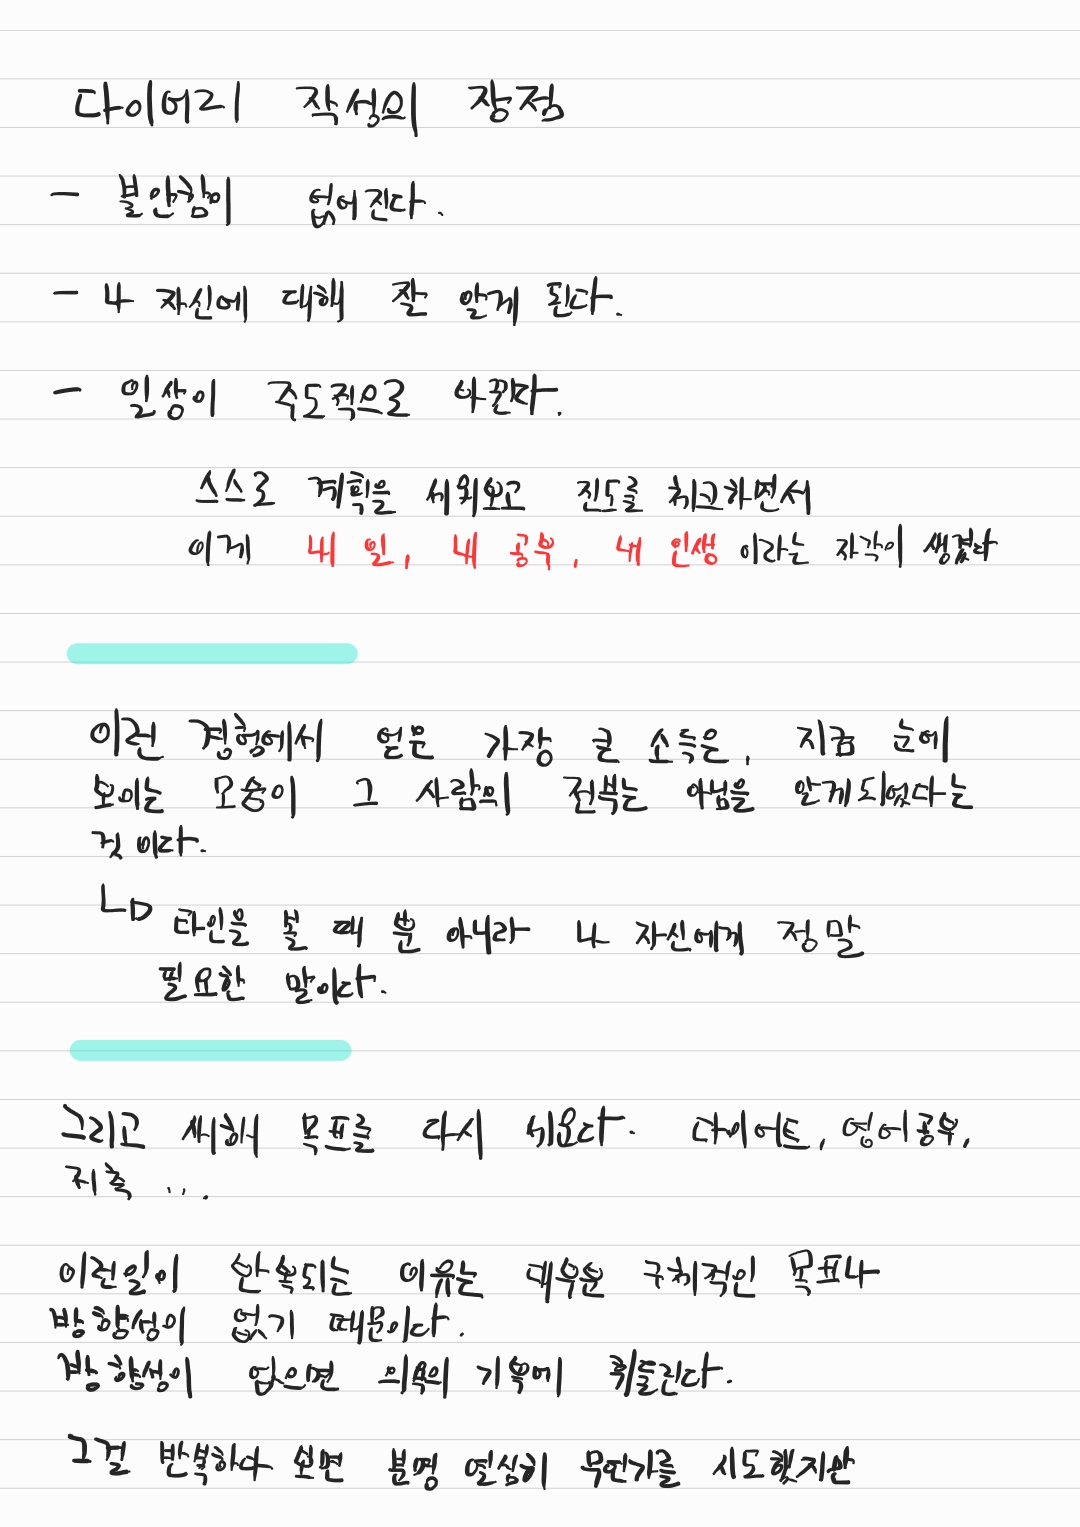 다이어리 작성의 장점
- 불안함이 없어진다.
- 나 자신에 대해 잘 알게 된다.
- 일상이 주도적으로 바뀐다.
스스로 계획을 세워보고 진도를 체크하면서
이게 내 일, 내 공부, 내 인생 이라는 자각이 생겼다
이런 경험에서 얻은 가장 큰 소득은, 지금 눈에
보이는 모습이 그 사람의 전부는 아님을 알게되었다는
것이다.
타인을 볼 때 뿐 아니라 나 자신에게 정말
필요한 말이다.
그리고 새해 목표를 다시 세운다. 다이어트, 영어공부,
저축 ...
이런일이 반복되는 이유는 대부분 구체적인 목표나
방향성이 없기 때문이다.
방향성이 없으면 의식의 기복에 휘둘린다.
그걸 반복하다 보면 분명 열심히 무언가를 시도했지만